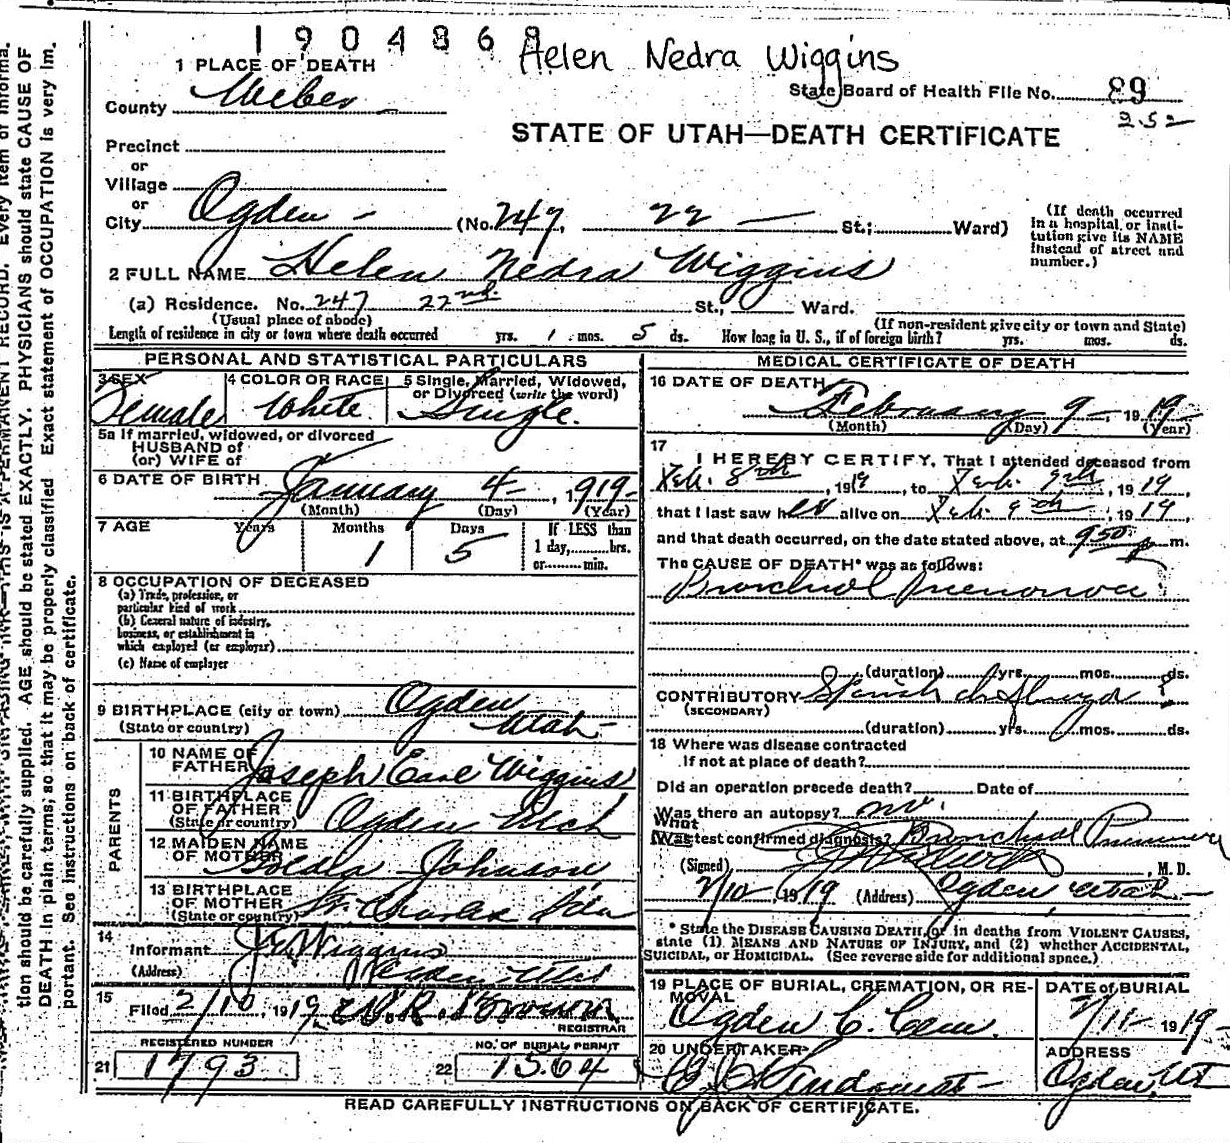 1904868
Helen Nedra Wiggins
1 PLACE OF DEATH
County Weber
State Board of Health File No. 89
252
STATE OF UTAH—DEATH CERTIFICATE
Precinct
or
Village
or
City Ogden - (No. 247, 22 — St.; Ward)
(If death occurred in a hospital or institution give its NAME instead of street and number.)
2 FULL NAME Helen Nedra Wiggins
(a) Residence. No. 247 22nd St., Ward.
(Usual place of abode) (If non-resident give city or town and State)
Length of residence in city or town where death occurred yrs. 1 mos. 5 ds. How long in U. S., if of foreign birth? yrs. mos. ds.
PERSONAL AND STATISTICAL PARTICULARS
3 SEX Female
4 COLOR OR RACE White
5 Single, Married, Widowed, or Divorced (write the word) Single.
5a If married, widowed, or divorced
HUSBAND of
(or) WIFE of
6 DATE OF BIRTH January 4-, 1919-
(Month) (Day) (Year)
7 AGE Years Months 1 Days 5
If LESS than
1 day,......hrs.
or......min.
8 OCCUPATION OF DECEASED
(a) Trade, profession, or
particular kind of work
(b) General nature of industry,
business, or establishment in
which employed (or employer)
(c) Name of employer
9 BIRTHPLACE (city or town) Ogden
(State or country) Utah-
PARENTS
10 NAME OF FATHER Joseph Earl Wiggins
11 BIRTHPLACE OF FATHER (State or country) Ogden Utah
12 MAIDEN NAME OF MOTHER Johnson
13 BIRTHPLACE OF MOTHER (State or country) St. Charles Ida
14
Informant J E Wiggins
(Address) Ogden Utah
15
Filed 2/10, 1919
REGISTRAR
REGISTERED NUMBER
21 1793
NO. OF BURIAL PERMIT
22 1564
MEDICAL CERTIFICATE OF DEATH
16 DATE OF DEATH
February 9- 1919
(Month) (Day) (Year)
17
I HEREBY CERTIFY, That I attended deceased from
Feb. 8th, 1919, to Feb. 9th, 1919
that I last saw her alive on Feb. 9th, 1919
and that death occurred, on the date stated above, at 9 50 p m.
The CAUSE OF DEATH* was as follows:
Bronchial Pneumonia
(duration) yrs. mos. ds.
CONTRIBUTORY Spanish Influenza
(SECONDARY)
(duration) yrs. mos. ds.
18 Where was disease contracted
If not at place of death?
Did an operation precede death? Date of
Was there an autopsy? no.
What
(Was test confirmed diagnosis? Bronchial Pneumonia
(Signed) , M. D.
2/10, 1919 (Address) Ogden, Utah-
* State the DISEASE CAUSING DEATH, or in deaths from VIOLENT CAUSES,
state (1) MEANS AND NATURE OF INJURY, and (2) whether ACCIDENTAL,
SUICIDAL, or HOMICIDAL. (See reverse side for additional space.)
19 PLACE OF BURIAL, CREMATION, OR REMOVAL
Ogden C. Cem.
DATE of BURIAL
2/11- 1919-
20 UNDERTAKER
ADDRESS
Ogden, Ut
READ CAREFULLY INSTRUCTIONS ON BACK OF CERTIFICATE.
tion should be carefully supplied. AGE should be stated EXACTLY. PHYSICIANS should state CAUSE OF
DEATH in plain terms; so that it may be properly classified. Exact statement of OCCUPATION is very im-
portant. See instructions on back of certificate.